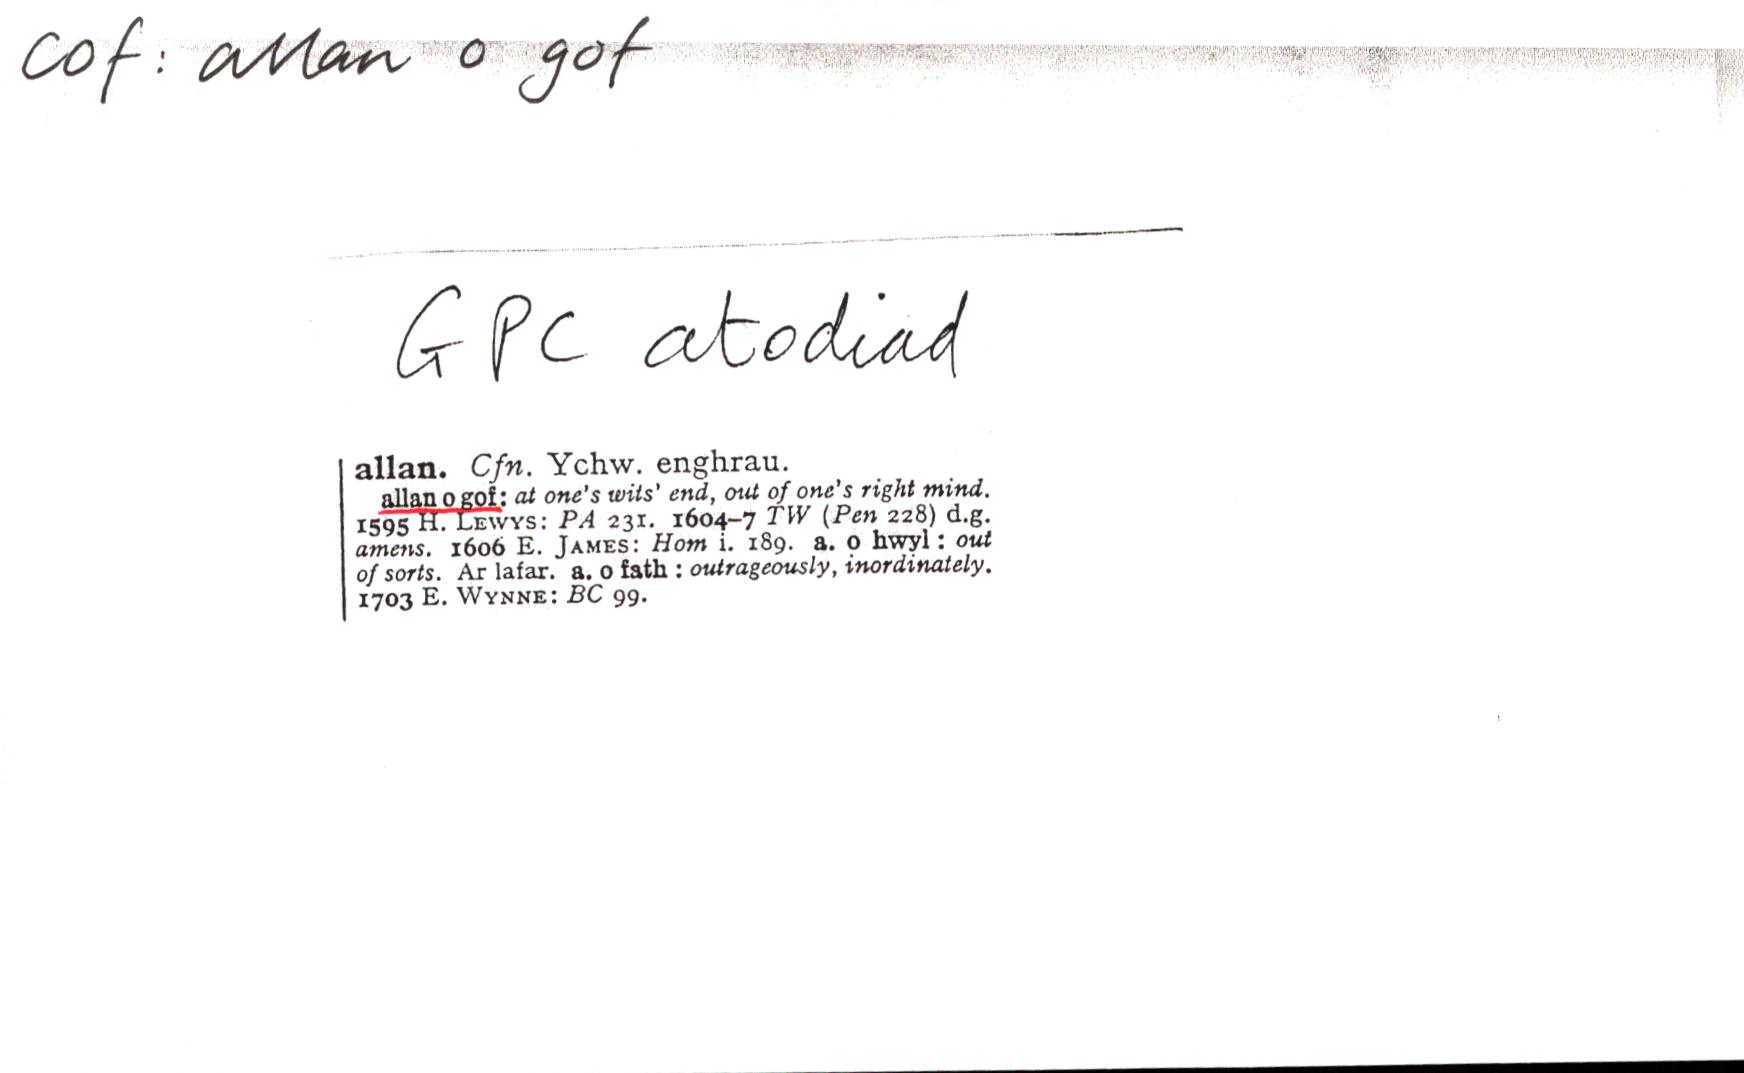 cof: allan o gof
GPC atodiad
allan. Cfn. Ychw. enghrau.
allan o gof: at one's wits' end, out of one's right mind.
1595 H. LEWYS: PA 231. 1604–7 TW (Pen 228) d.g.
amens. 1606 E. JAMES: Hom i. 189. a. o hwyl : out
of sorts. Ar lafar. a. o fath : outrageously, inordinately.
1703 E. WYNNE: BC 99.